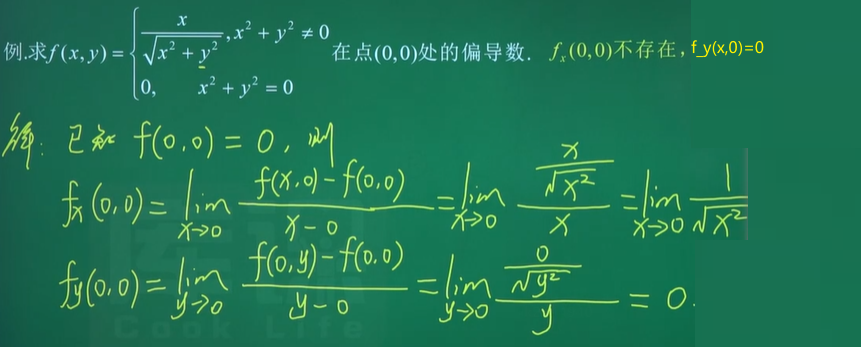 例.求f(x,y)={x/√(x²+y²), x²+y²≠0 在点(0,0)处的偏导数. fₓ(0,0)不存在,f_y(x,0)=0
0, x²+y²=0
解: 已知 f(0,0)=0, 则
fx(0,0)=lim x→0 (f(x,0)-f(0,0))/(x-0) =lim x→0 (x/√x²)/x =lim x→0 1/√x²
fy(0,0)=lim y→0 (f(0,y)-f(0,0))/(y-0) =lim y→0 (0/√y²)/y = 0.
Cook Life